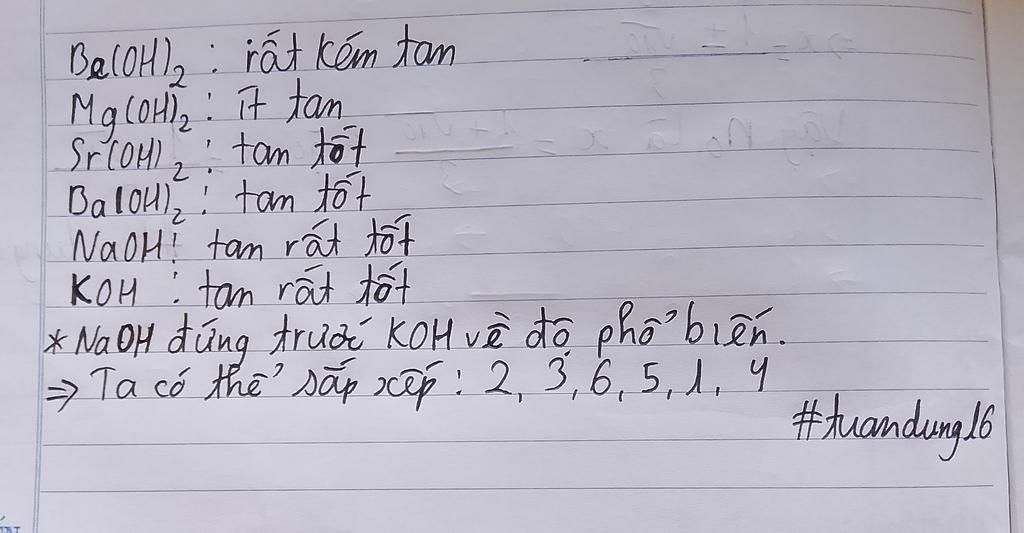 Be(OH)₂ : rất kém tan
Mg(OH)₂ : ít tan
Sr(OH)₂ : tan tốt
Ba(OH)₂ : tan tốt
NaOH : tan rất tốt
KOH : tan rất tốt
* NaOH đứng trước KOH về độ phổ biến.
⇒ Ta có thể sắp xếp : 2, 3, 6, 5, 1, 4
#tuandung16